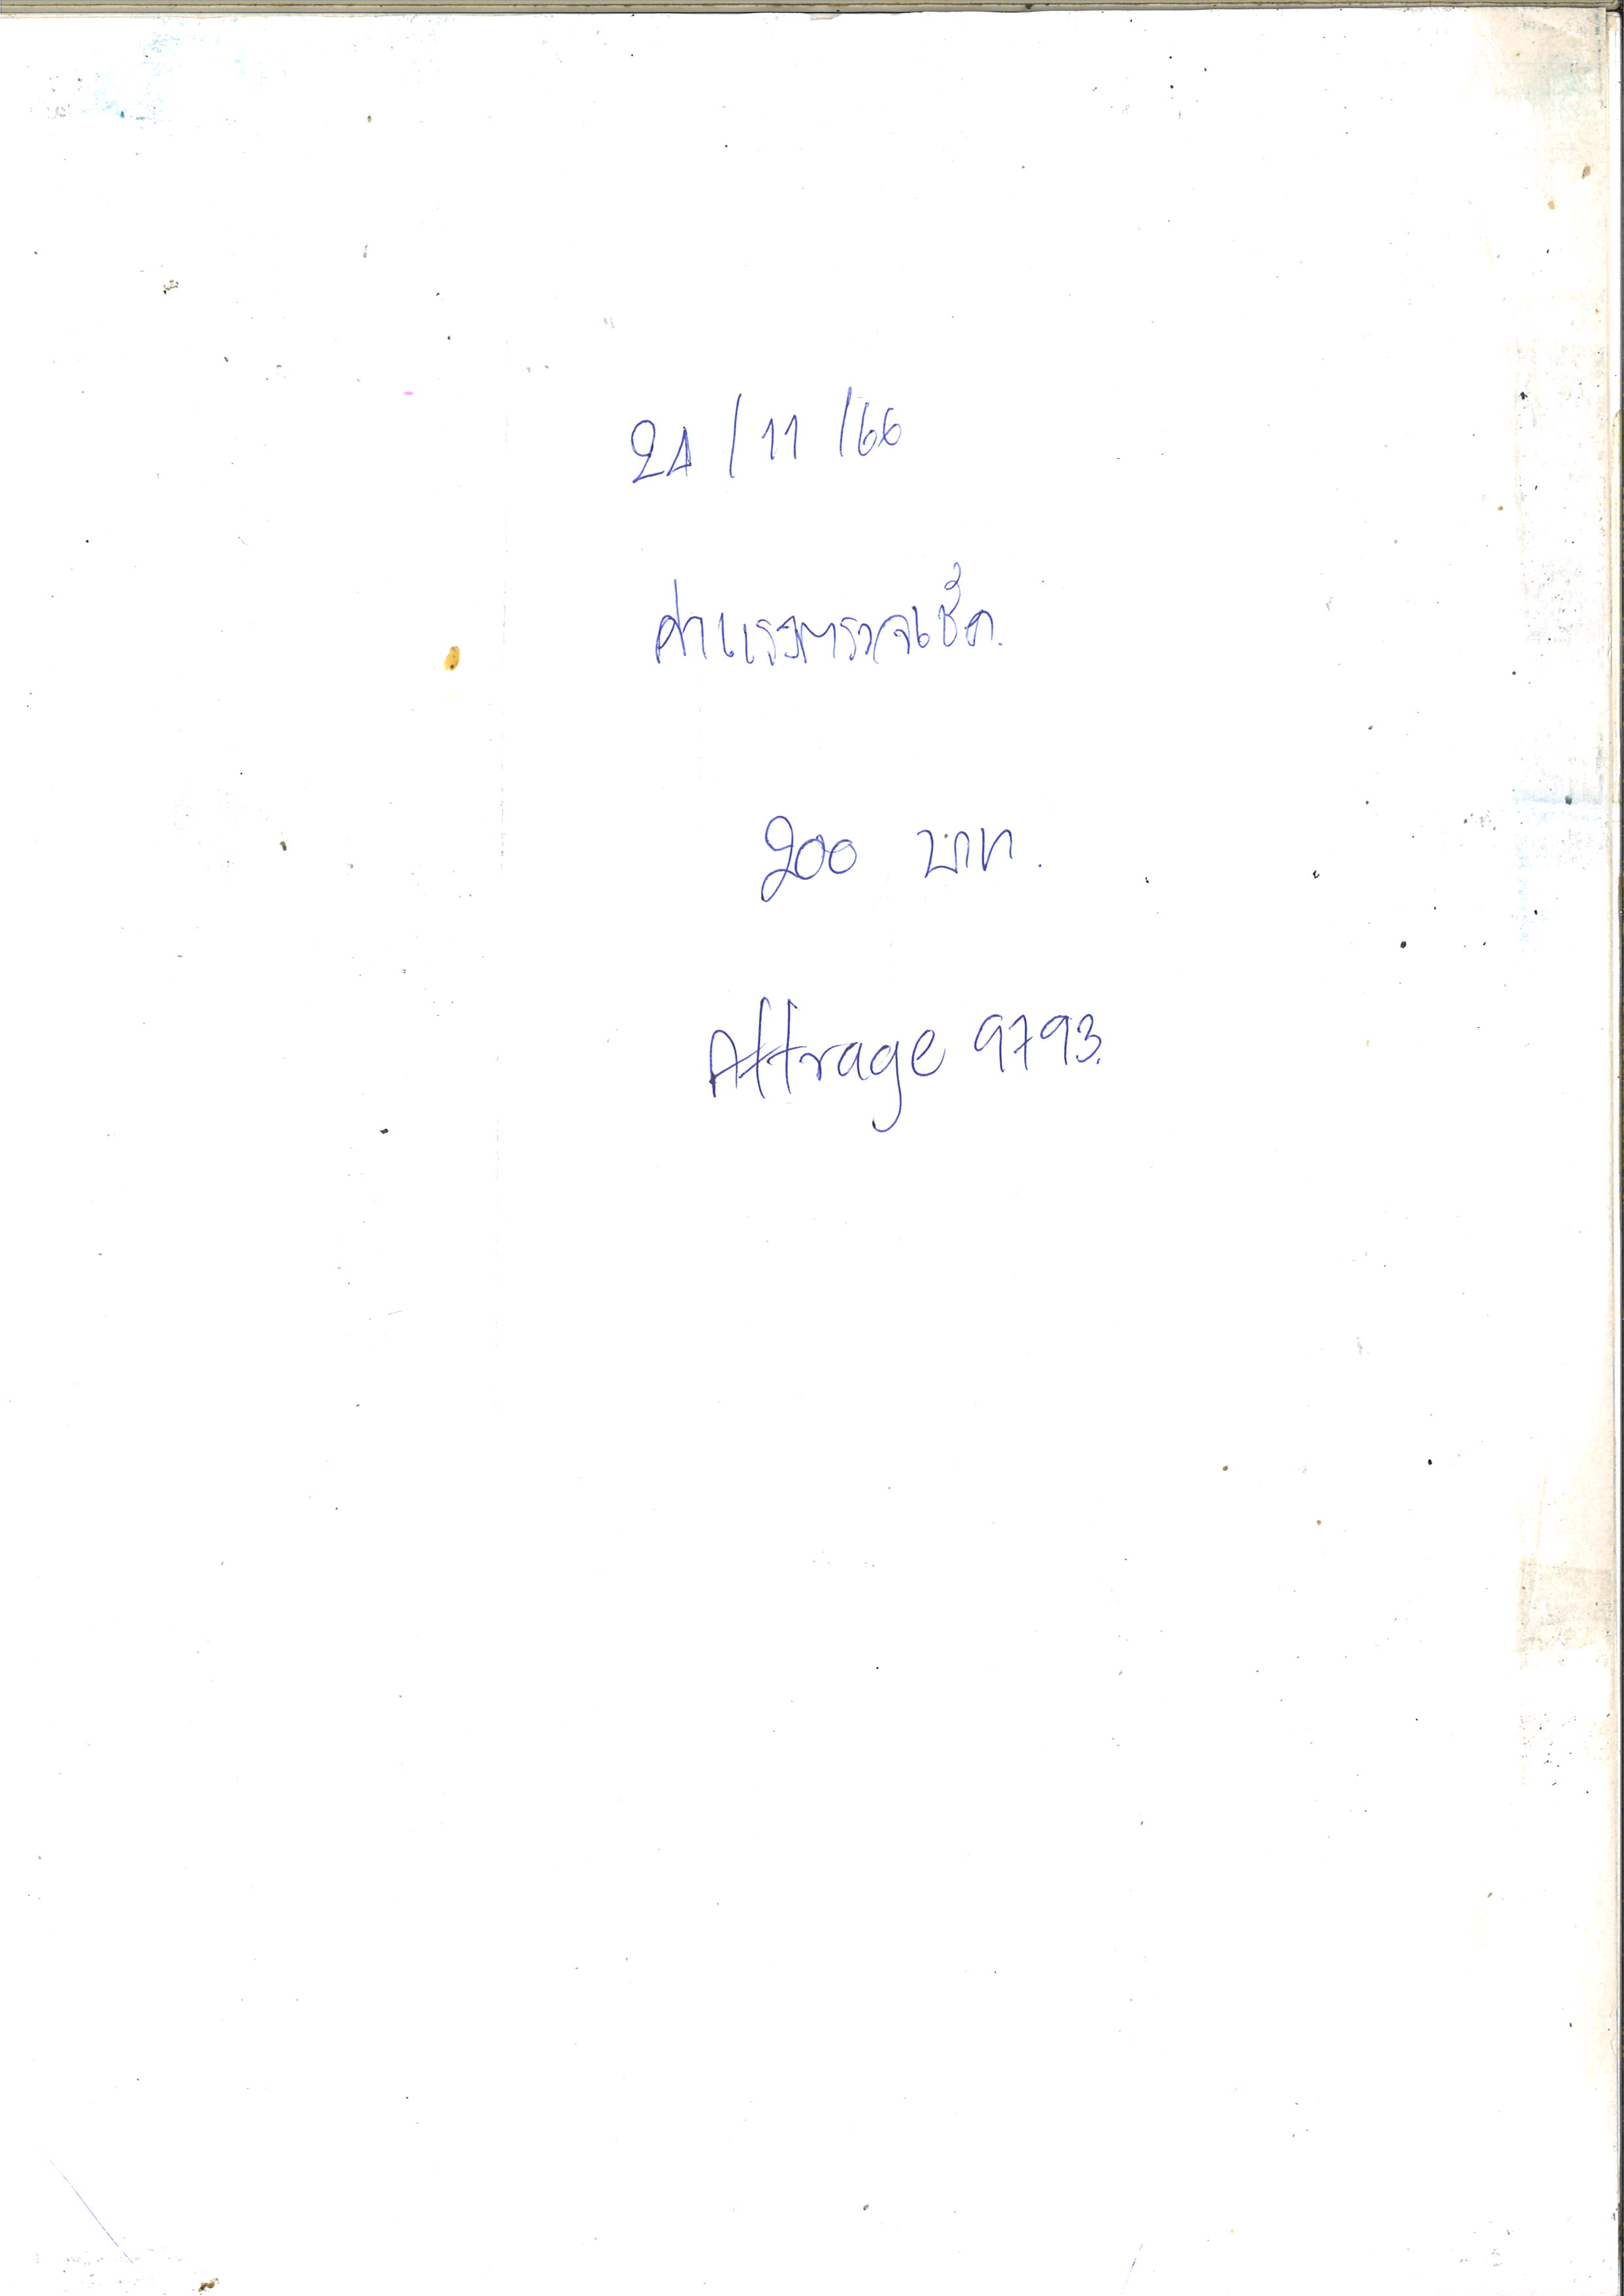 24/11/66
ค่าแรงตรวจเช็ค.
200 บาท.
Attrage 9793.